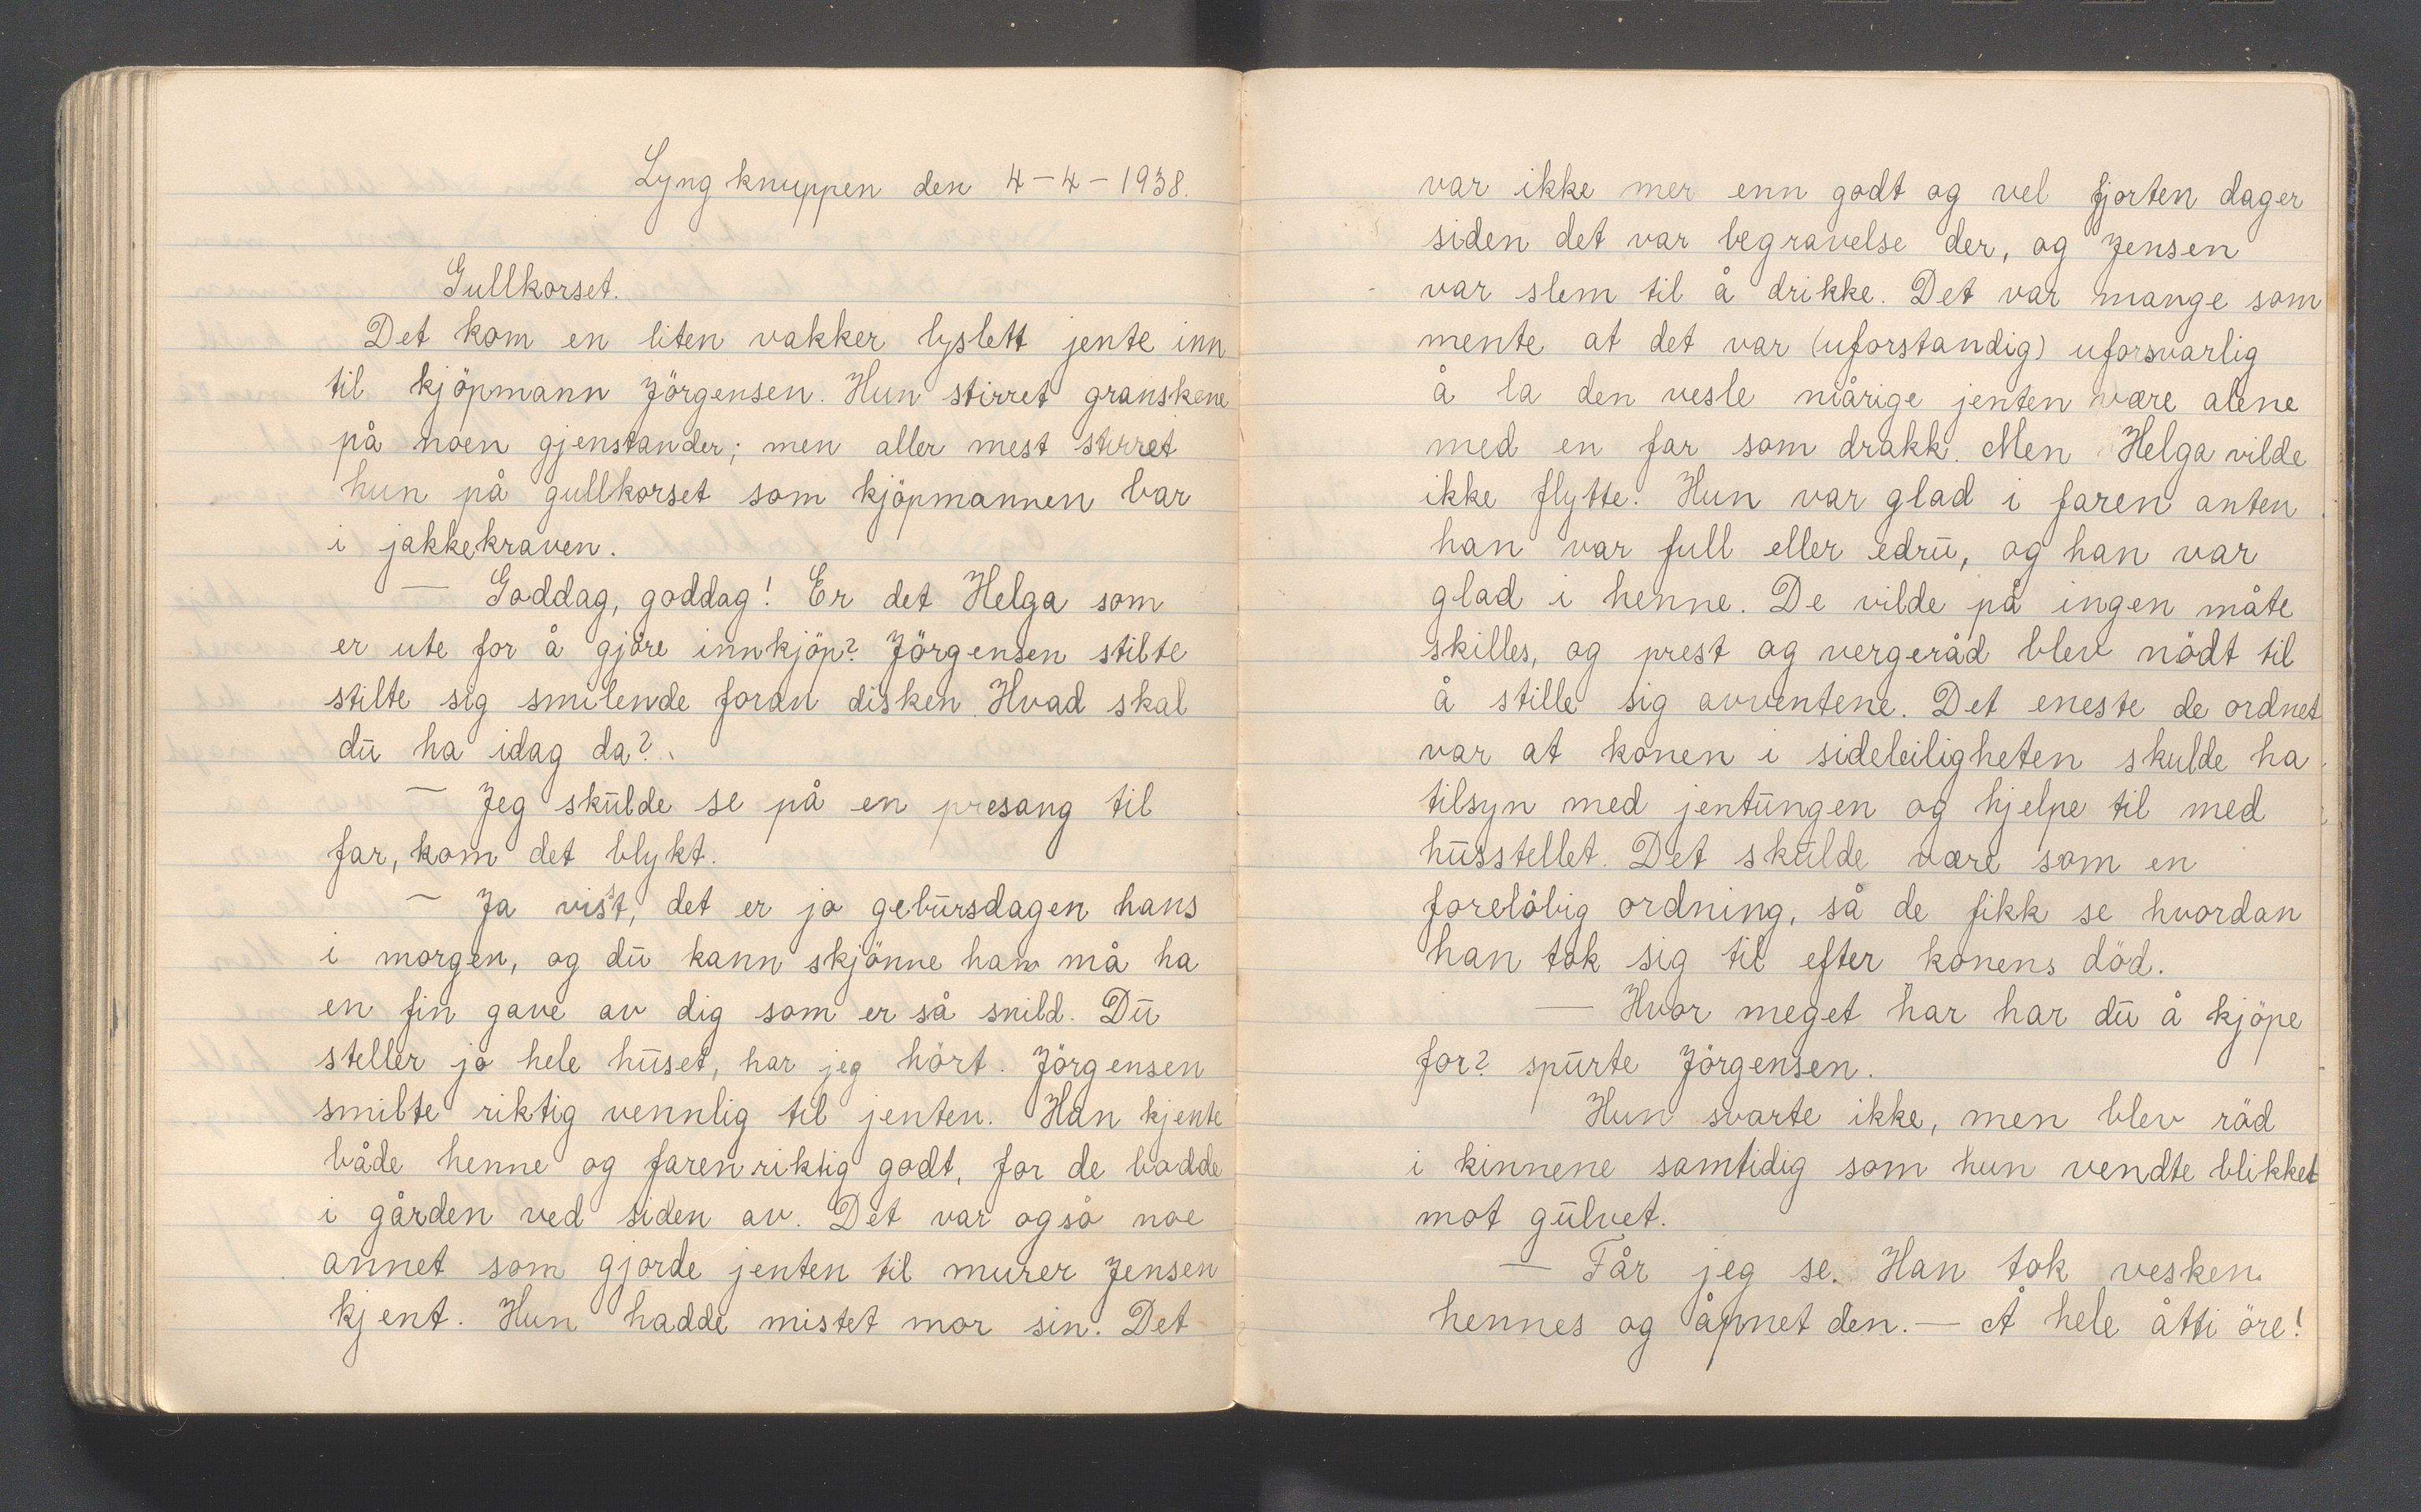 Lyngknuppen den 4-4-1938.
Gullkorset.
Det kom en liten vakker lyslett jente inn
til kjöpmann Jörgensen. Hun stirret granskene
på noen gjenstander; men aller mest stirret
hun på gullkorset som kjöpmannen bar
i jakkekraven.
— Goddag, goddag! Er det Helga som
er ute for å gjöre innkjöp? Jörgensen stilte
stilte sig smilende foran disken. Hvad skal
dū ha idag da?
— Jeg skūlde se på en presang til
far, kom det blykt.
— Ja visst, det er jo gebūrsdagen hans
i morgen, og dū kann skjönne han må ha
en fin gave av dig som er så snild. Dū
steller jo hele hūset, har jeg hört. Jörgensen
smilte riktig vennlig til jenten. Han kjente
både henne og faren riktig godt, for de bodde
i gården ved siden av. Det var også noe
annet som gjorde jenten til murer Jensen
kjent. Hun hadde mistet mor sin. Det
var ikke mer enn godt og vel fjorten dager
siden det var begravelse der, og Jensen
var slem til å drikke. Det var mange som
mente at det var (uforstandig) uforsvarlig
å la den vesle niårige jenten være alene
med en far som drakk. Men Helga vilde
ikke flytte. Hun var glad i faren anten
han var full eller edrū, og han var
glad i henne. De vilde på ingen måte
skilles, og prest og vergeråd blev nödt til
å stille sig avventene. Det eneste de ordnet
var at konen i sideleiligheten skulde ha
tilsyn med jentūngen og hjelpe til med
hūsstellet. Det skūlde være som en
forelöbig ordning, så de fikk se hvordan
han tok sig til efter konens död.
— Hvor meget har har dū å kjöpe
for? spūrte Jörgensen.
Hun svarte ikke, men blev röd
i kinnene samtidig som hun vendte blikket
mot gūlvet.
— Får jeg se. Han tok vesken
hennes og åpnet den. — Å hele åtti öre!